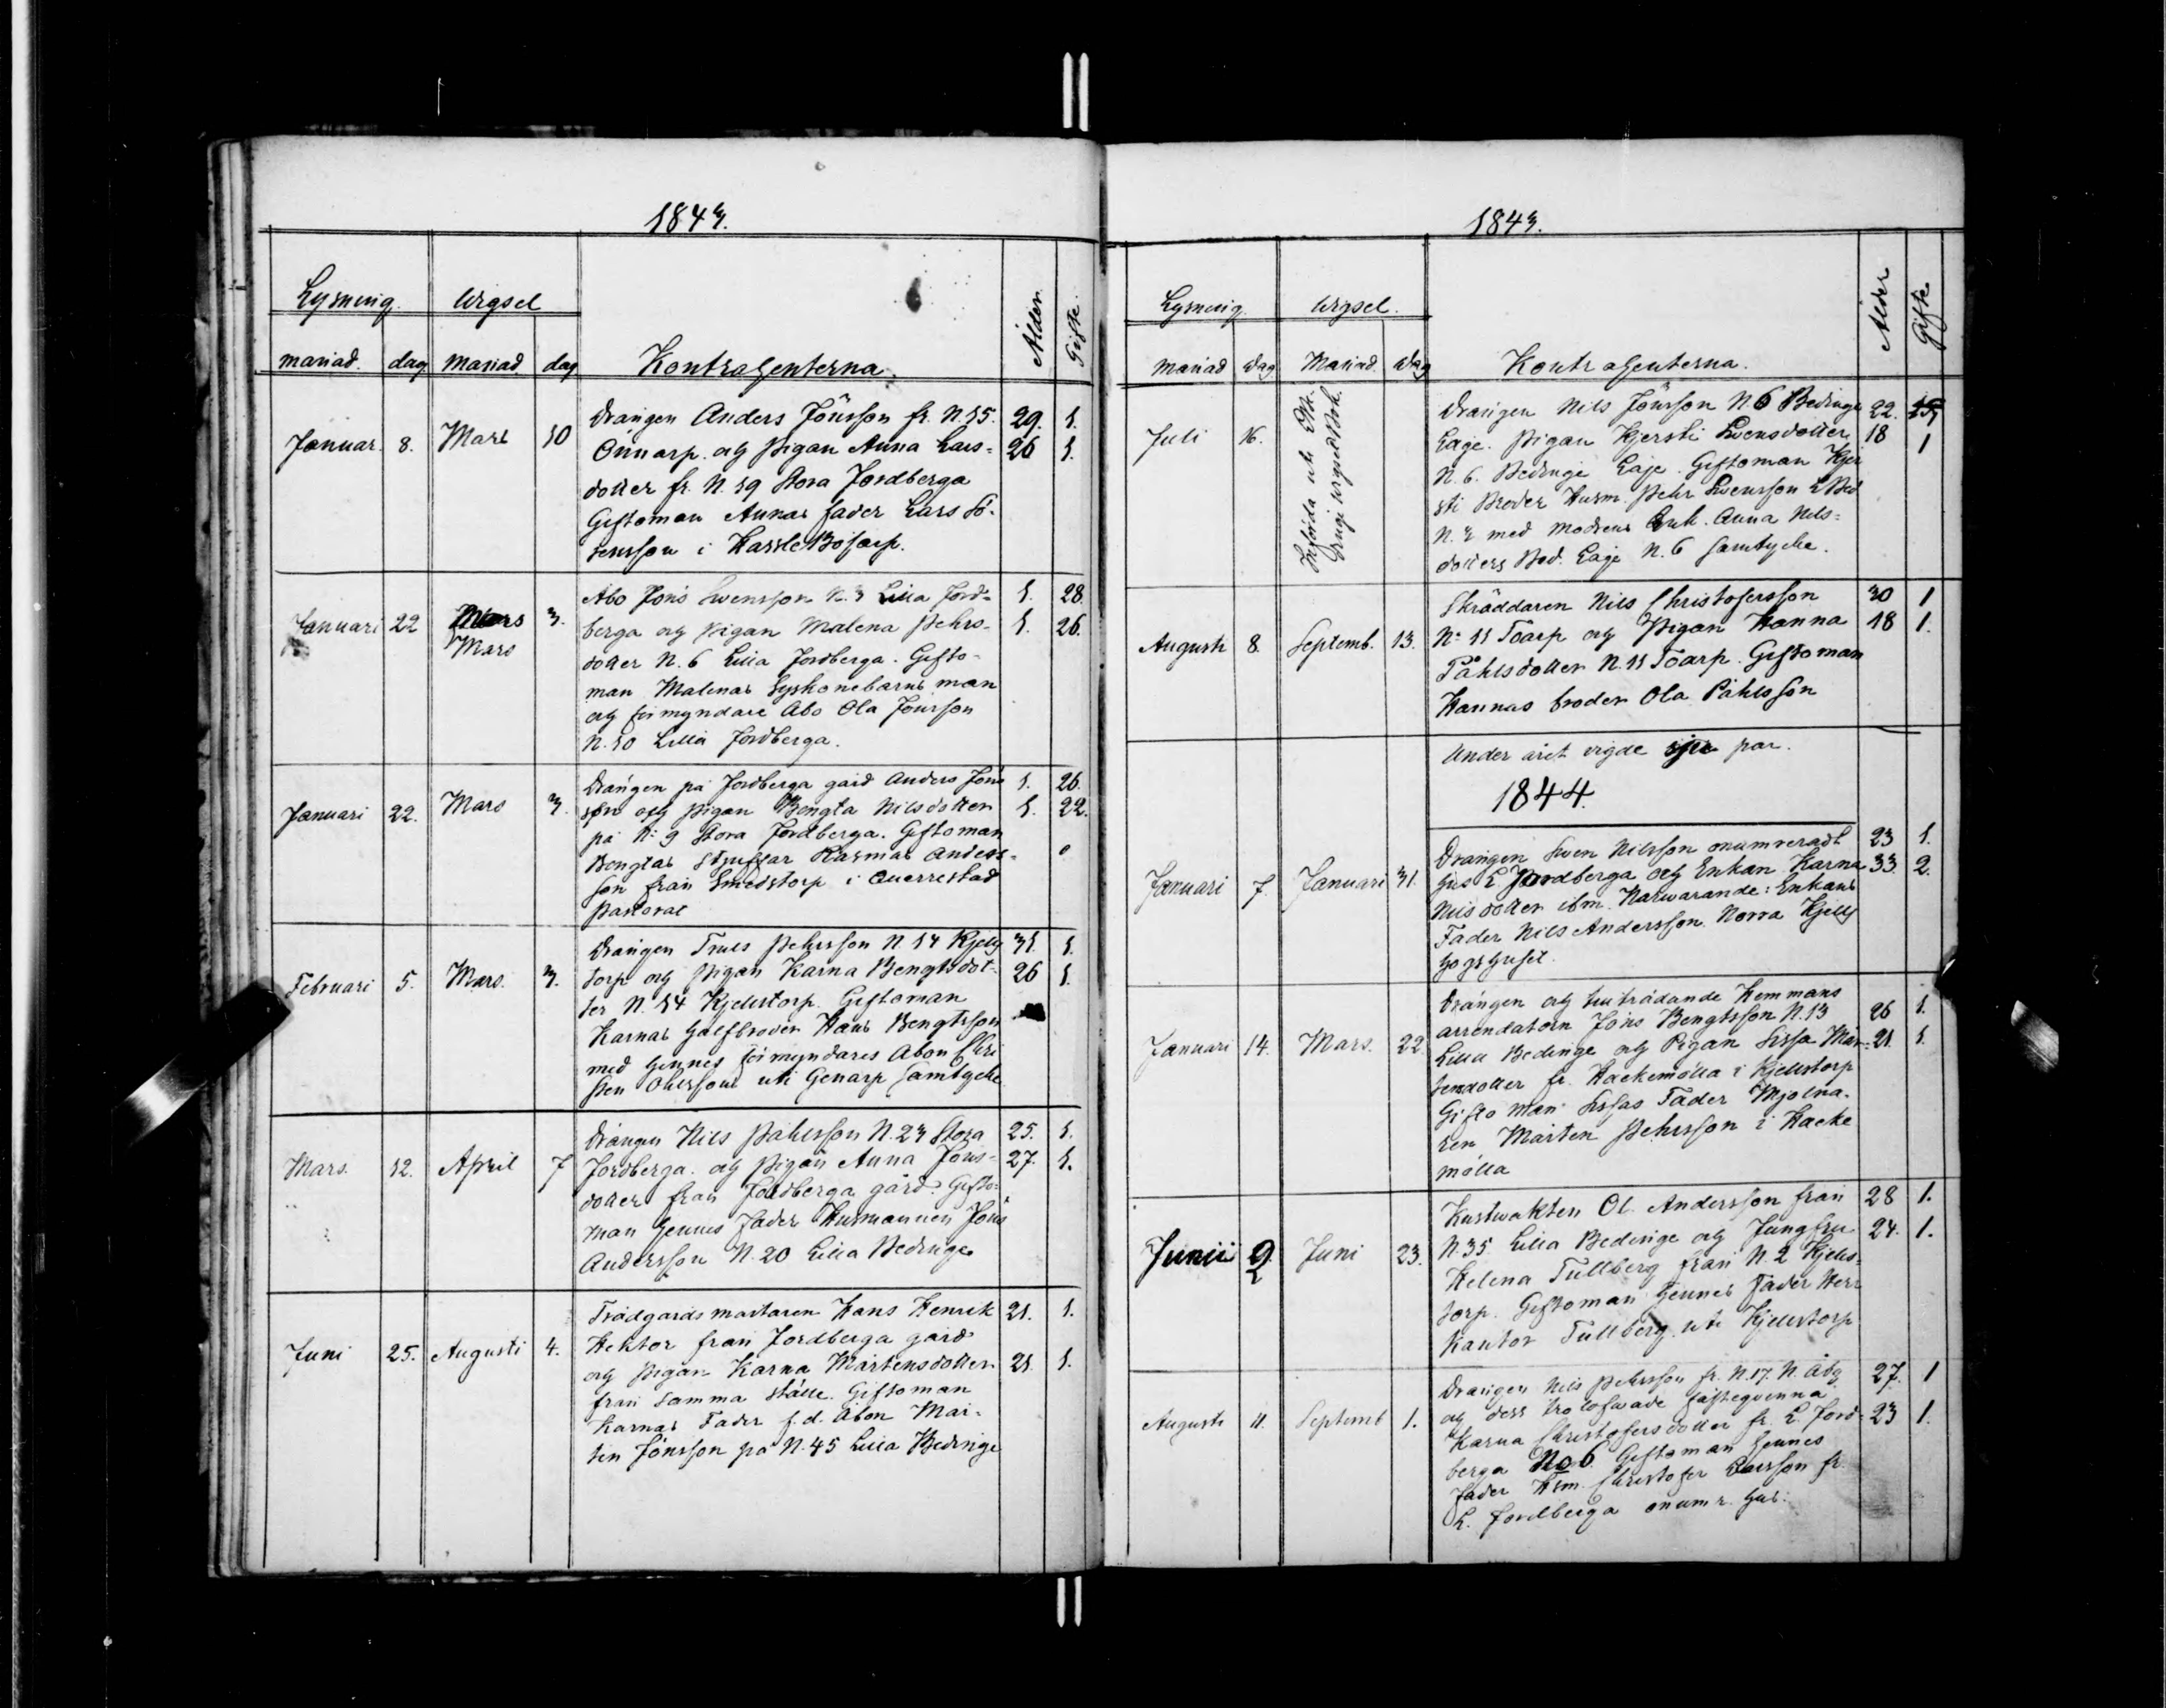 1843.
Lysning. Wigsel
månad. dag månad dag Kontrahenterna. Ålder. Gifte.
Januar. 8. Mars 10
Drängen Anders Jönsson fr. N. 15. 29. 1.
Önnarp. och Pigan Anna Lars- 26 1.
dotter fr. N. 19 Stora Jordberga
Giftoman Annas fader Lars Sö-
rensson i Hassle Bösarp.
Januari 22 Mars 3.
Mars
Åbo Jöns Swensson N. 3 Lilla Jord- 1. 28.
berga och Pigan Malena Pehrs- 1. 26.
dotter N. 6 Lilla Jordberga. Gifto-
man Malenas Syskonebarns man
och förmyndare Åbo Ola Jönsson
N. 10 Lilla Jordberga.
Januari 22. Mars 3.
Drängen på Jordberga gård Anders Jöns 1. 26.
son och Pigan Bengta Nilsdotter 1. 22.
på N: 9 Stora Jordberga. Giftoman
Bengtas Styffar Rasmus Anders-
son från Smedstorp i Querrestad
Pastorat
Februari 5. Mars. 3.
Drängen Truls Pehrsson N. 14 Kjells 31. 1.
torp och Pigan Karna Bengtsdot- 26 1.
ter N. 14 Kjellstorp. Giftoman
Karnas halfbroder Hans Bengtsson
med hennes förmyndares Åbon Chri
sten Ohlssons uti Genarp samtycke
Mars. 12. April 7
Drängen Nils Påhlsson N. 23 Stora 25. 1.
Jordberga. och Pigan Anna Jöns- 27. 1.
dotter från Jordberga gård. Gifto-
man hennes fader Husmannen Jöns
Andersson N. 20 Lilla Bedinge
Juni 25. Augusti 4.
Trädgårdsmästaren Hans Henrik 21. 1.
Hektor från Jordberga gård
och Pigan Karna Mårtensdotter 21. 1.
från samma ställe. Giftoman
Karnas Fader f.d. Åbon Mår-
ten Jönsson på N. 45 Lilla Bedinge
1843.
Lysning. Wigsel.
månad dag Månad. dag Kontrahenterna. Ålder Gifte
Juli 16.
Drängen Nils Jönsson N. 6 Bedinge 22.
Läge. Pigan Kjersti Swensdotter 18 1
N. 6. Bedinge Läje. Giftoman Kjer
sti Broder Husm. Pehr Swensson L Bed
N. 3 med modrens Enk. Anna Nils-
dotters Bed. Läje N. 6 samtycke.
Augusti 8. Septemb. 13.
Skräddaren Nils Christofersson 30 1
N: 11 Toarp och Pigan Hanna 18 1.
Påhlsdotter N. 11 Toarp. Giftoman
Hannas broder Ola Påhlsson
Under året vigde sju par.
1844.
Januari 7. Januari 31.
Drängen Swen Nilsson onumreradt 23 1.
hus L Jordberga och Enkan Karna 33. 2.
Nilsdotter ibm. Närwarande: Enkans
Fader Nils Andersson. Norra Kjells
högshuset.
Januari 14. Mars. 22
Drängen och tillträdande Hemmans
arrendatorn Jöns Bengtsson N. 13 26 1.
Lilla Bedinge och Pigan Sissa Mår- 21. 1.
tensdotter fr. Hackemölla i Kjellstorp
Giftoman Sissas Fader Mjölna-
ren Mårten Pehrsson i Hacke
mölla
Junii 2 Juni 23.
Kustwakten Ol. Andersson från 28 1.
N. 35. Lilla Bedinge och Jungfru 24. 1.
Helena Tullberg från N. 2 Kjells-
torp. Giftoman hennes Fader Herr
Kantor Tullberg uti Kjellstorp
Augusti 11. Septemb 1.
Drängen Nils Pehrsson fr. N. 17. N. Åby 27. 1
och dess trolofwade fästeqvinna 23 1.
Karna Christofersdotter fr. L. Jord-
berga No 6. Giftoman hennes
fader Hsm. Christofer Larsson fr.
L. Jordberga onumr. hus.